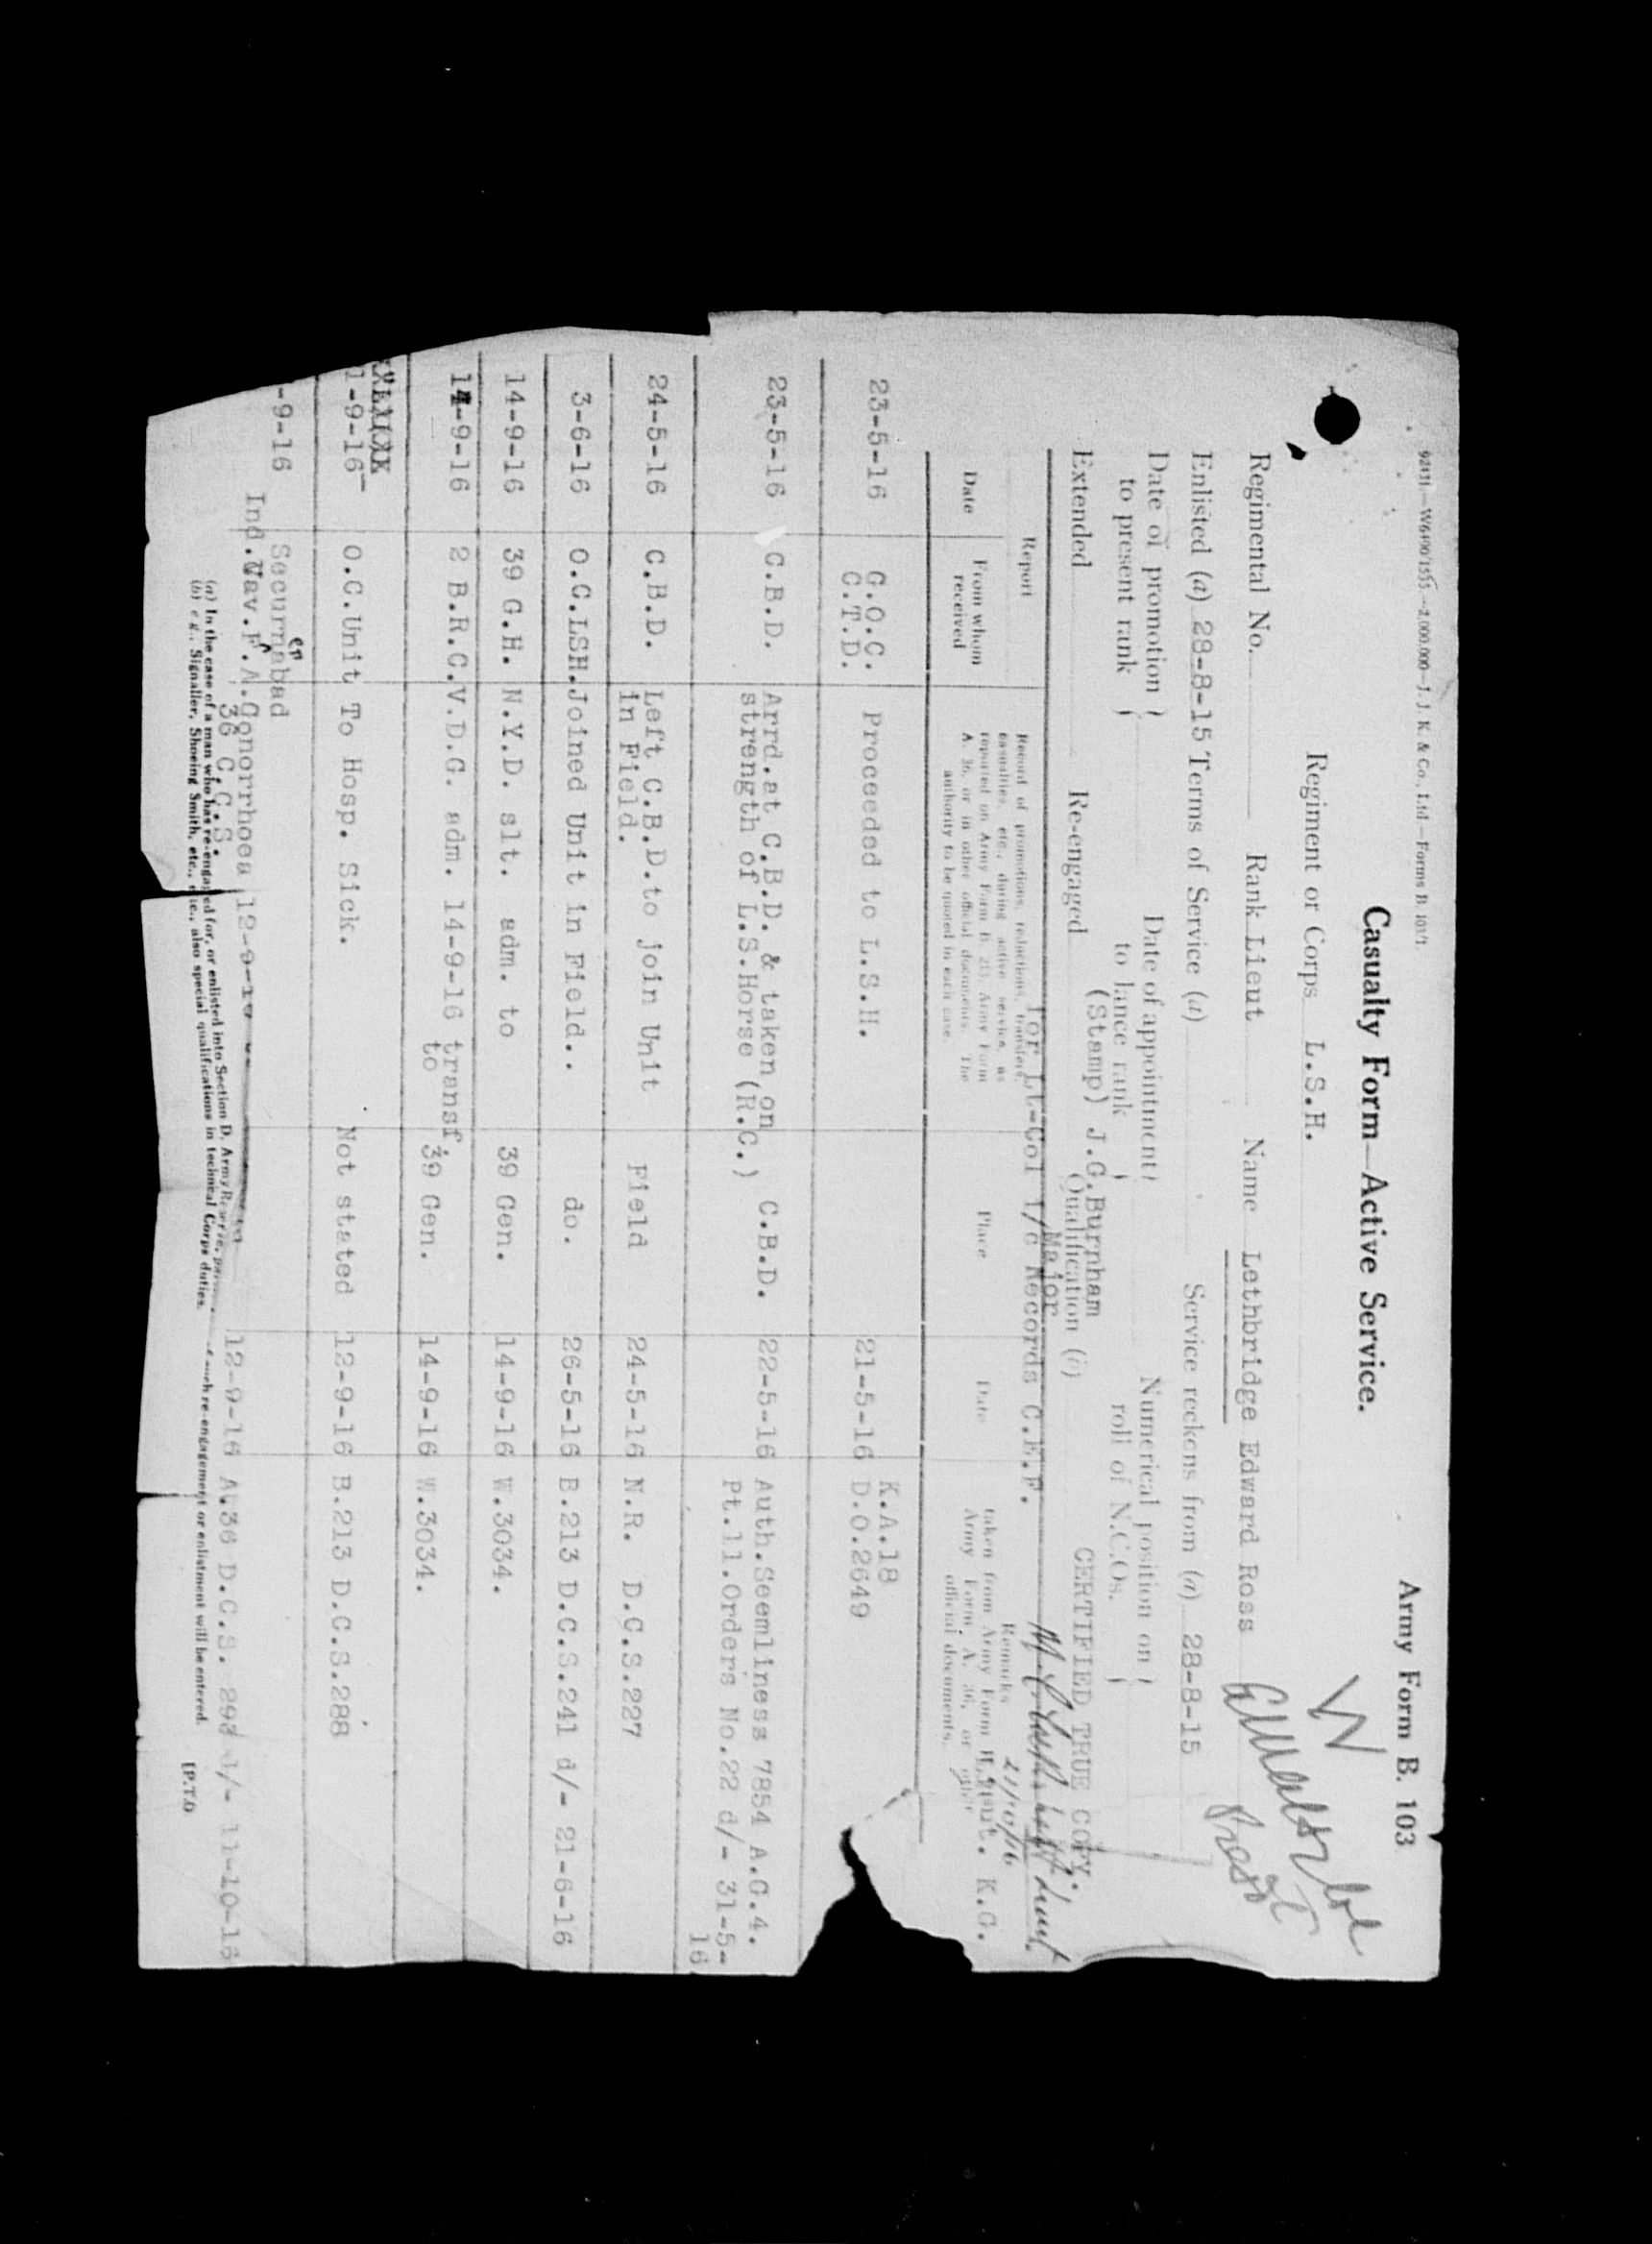 92111—W6490/1555—2,000,000—J. J. K. & Co., Ltd.—Forms B. 103/1.
Army Form B. 103
Casualty Form—Active Service.
W
Regiment or Corps L.S.H.
Regimental No. Rank Lieut Name Lethbridge Edward Ross
Enlisted (a) 28-8-15 Terms of Service (a) Service reckons from (a) 28-8-15
Date of promotion } to present rank
Date of appointment } to lance rank
Numerical position on } roll of N.C.Os.
Extended Re-engaged Qualification (b)
(Stamp) J.G.Burnham
Major
for Lt-Col i/c Records C.E.F.
CERTIFIED TRUE COPY.
Lieut. K.G.
Report
Date
From whom received
Record of promotions, reductions, transfers, casualties, etc., during active service, as reported on Army Form B. 213, Army Form A. 36, or in other official documents. The authority to be quoted in each case.
Place
Date
Remarks taken from Army Form B. 213, Army Form A. 36, or other official documents.
23-5-16 G.O.C. C.T.D. Proceeded to L.S.H. 21-5-16 K.A.18 D.O.2649
23-5-16 C.B.D. Arrd.at C.B.D. & taken on strength of L.S.Horse (R.C.) C.B.D. 22-5-16 Auth.Seemliness 7854 A.G.4. Pt.11.Orders No.22 d/- 31-5-16
24-5-16 C.B.D. Left C.B.D.to join Unit in Field. Field 24-5-16 N.R. D.C.S.227
3-6-16 O.C.LSH. Joined Unit in Field.. do. 26-5-16 B.213 D.C.S.241 d/- 21-6-16
14-9-16 39 G.H. N.Y.D. slt. adm. to 39 Gen. 14-9-16 W.3034.
14-9-16 2 B.R.C. V.D.G. adm. 14-9-16 transf. to 39 Gen. 14-9-16 W.3034.
1-9-16 O.C.Unit To Hosp. Sick. Not stated 12-9-16 B.213 D.C.S.288
-9-16 Secunderabad
Ind.Cav.F.A. Gonorrhoea 12-9-16
36 C.C.S. 12-9-16 A.36 D.C.S. d/- 11-10-16
(a) In the case of a man who has re-engaged for, or enlisted into Section D. Army Reserve, of such re-engagement or enlistment will be entered.
(b) e.g., Signaller, Shoeing Smith, etc., etc., also special qualifications in technical Corps duties.
[P.T.O